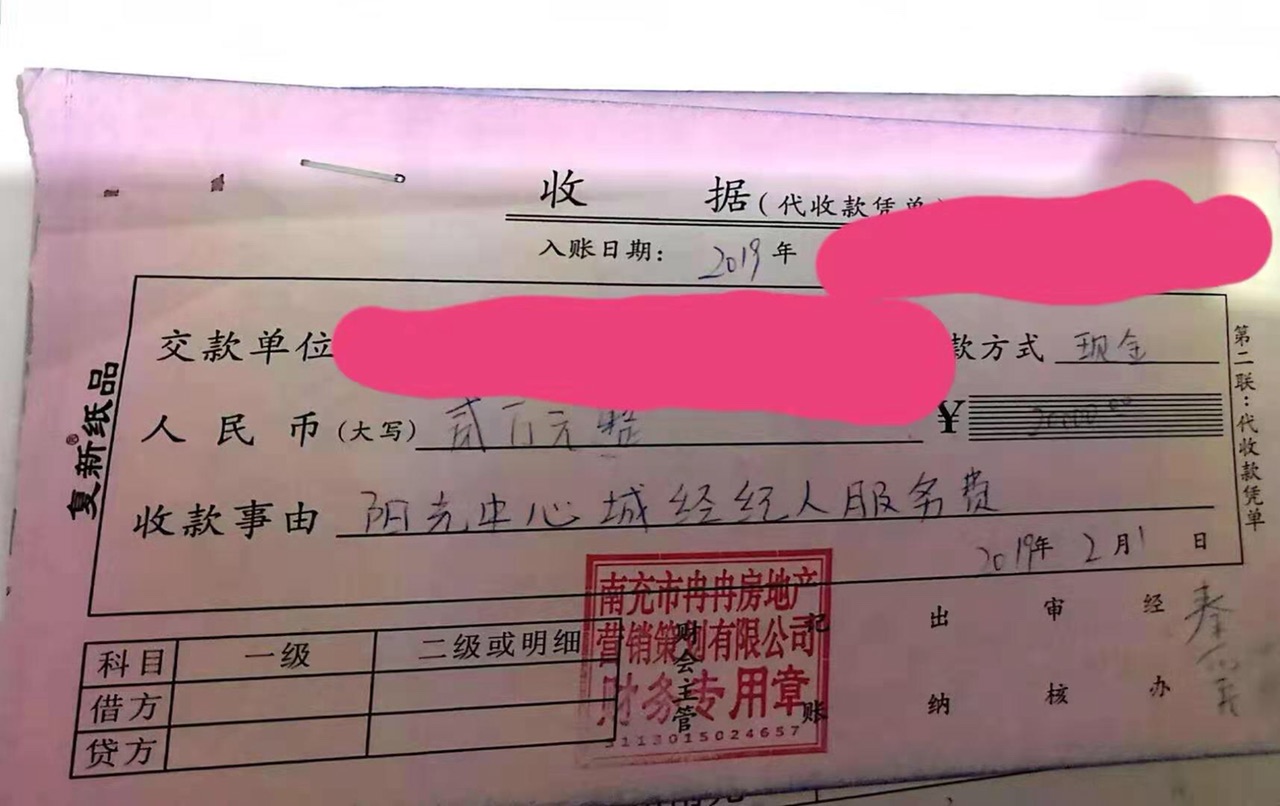 收 据(代收款凭单)
入账日期: 2019年
交款单位
款方式 现金
人民币(大写) 贰万元整 ¥ 20000.00
收款事由 阳光中心城经纪人服务费
2019年2月1日
复新纸品®
第二联:代收款凭单
南充市冉冉房地产
营销策划有限公司
财务专用章
5113015024657
科目 一级 二级或明细
借方
贷方
财会主管
记账
出纳
审核
经办